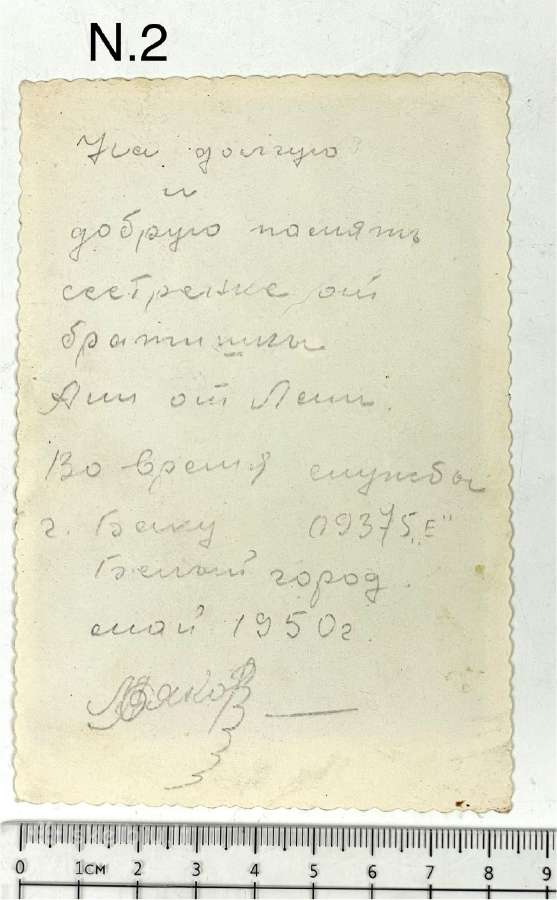 N.2
На долгую
и
добрую память
сестренке от
братишки
Ани от Лени.
Во время службы
г. Баку 09375 „Е"
Белый город.
май 1950г.
0 1СМ 2 3 4 5 6 7 8 9